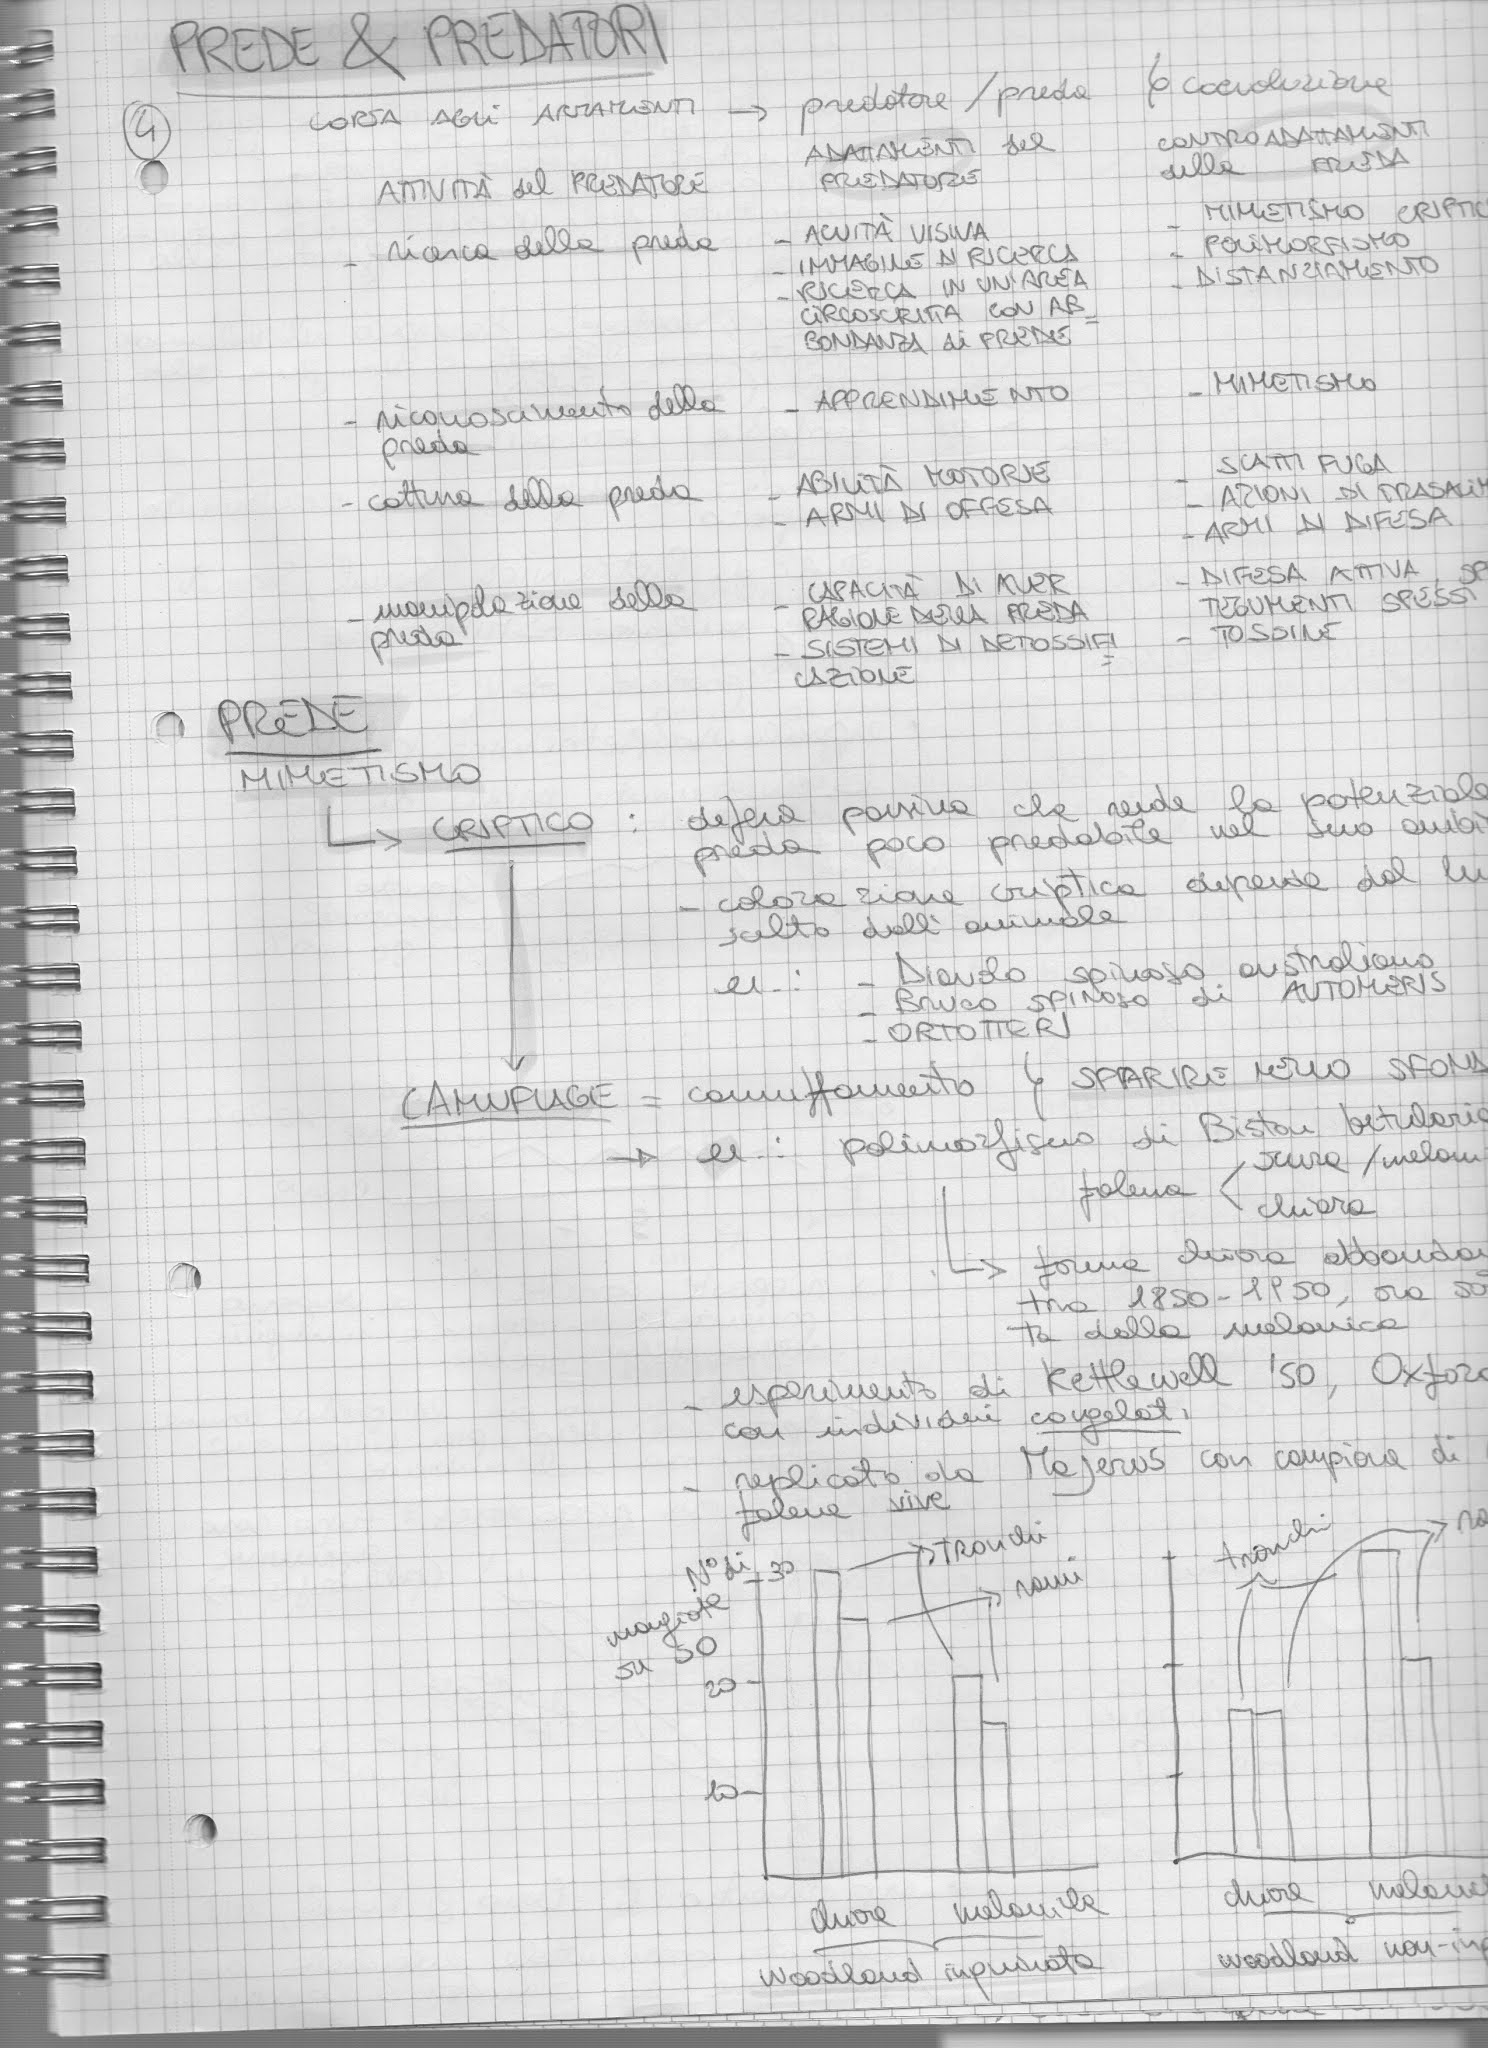 PREDE & PREDATORI
4
CORSA AGLI ARMAMENTI → predatore/preda ↳ coevoluzione
ATTIVITÀ del PREDATORE
ADATTAMENTI del
PREDATORE
CONTROADATTAMENTI
della PREDA
- ricerca della preda
- ACUITÀ VISIVA
- IMMAGINE DI RICERCA
- RICERCA IN UN'AREA
CIRCOSCRITTA CON AB=
BONDANZA di PREDE
- MIMETISMO CRIPTIC
- POLIMORFISMO
- DISTANZIAMENTO
- riconoscimento della
preda
- APPRENDIMENTO
- MIMETISMO
- cattura della preda
- ABILITÀ MOTORIE
- ARMI DI OFFESA
- SCATTI FUGA
- AZIONI DI TRASALIM
- ARMI DI DIFESA
- manipolazione della
preda
- CAPACITÀ DI AVER
RAGIONE DELLA PREDA
- SISTEMI DI DETOSSIFI=
CAZIONE
- DIFESA ATTIVA, SP
TEGUMENTI SPESSI
- TOSSINE
PREDE
MIMETISMO
↳ CRIPTICO : difesa passiva che rende la potenziale
preda poco predabile nel suo ambi
- colorazione criptica dipende dal lu
scelto dall'animale
es.: - Diavolo spinoso australiano
- Bruco spinoso di AUTOMERIS
- ORTOTTERI
CAMUFLAGE = camuffamento ↳ SPARIRE NELLO SFOND
→ es.: polimorfismo di Biston betularia
falena < scura/melani
chiara
↳ forma chiara abbondan
tra 1850-1950, ora so
ta dalla melanica
- esperimento di Kettlewell '50, Oxford
con individui congelati
- replicato da Majerus con campione di
falene vive
N° di
mangiate
su 50
30
20
10
tronchi
rami
tronchi
ra
chiara melanica
woodland inquinata
chiara melani
woodland non-inq